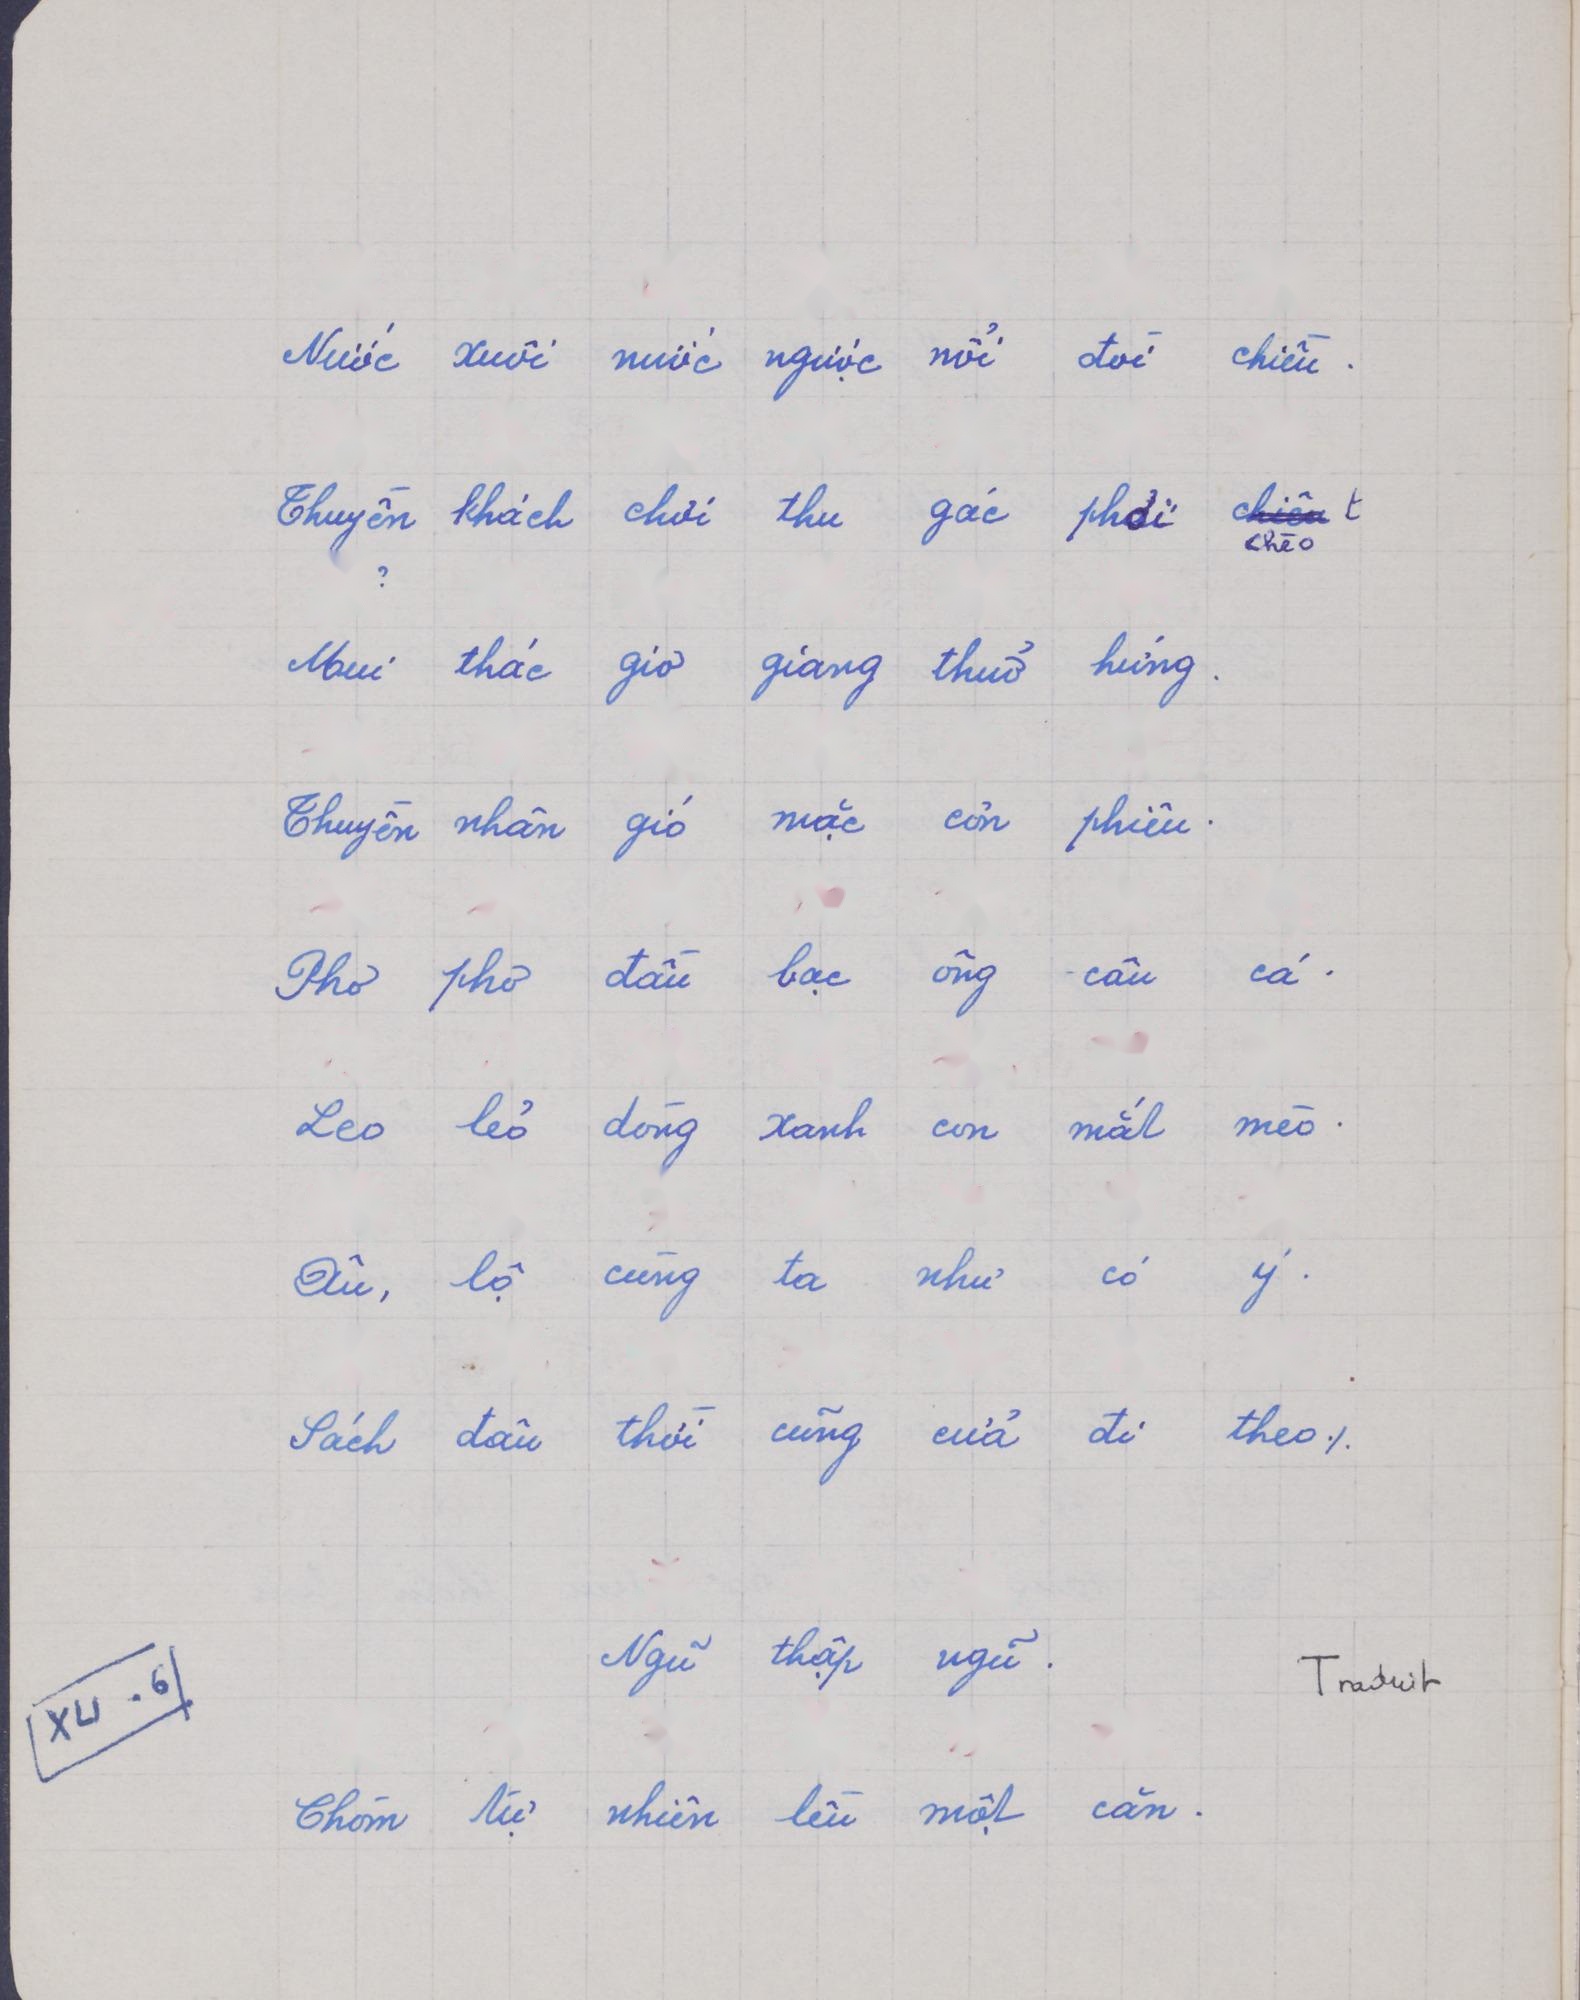 Nước xuôi nước ngược nổi đòi chiều.
Thuyền khách chơi thu gác phơi chiêu t
chèo
?
Mui thác giơ giang thuở hứng.
Thuyền nhân gió mặc cơn phiêu.
Phơ phơ đầu bạc ông câu cá.
Leo lẻo dòng xanh con mắt mèo.
Âu, lộ cùng ta như có ý.
Sách đâu thời cũng cửa đi theo ./.
Ngũ thập ngũ.
Traduit
XLI . 6
Chòm tự nhiên lều một căn.